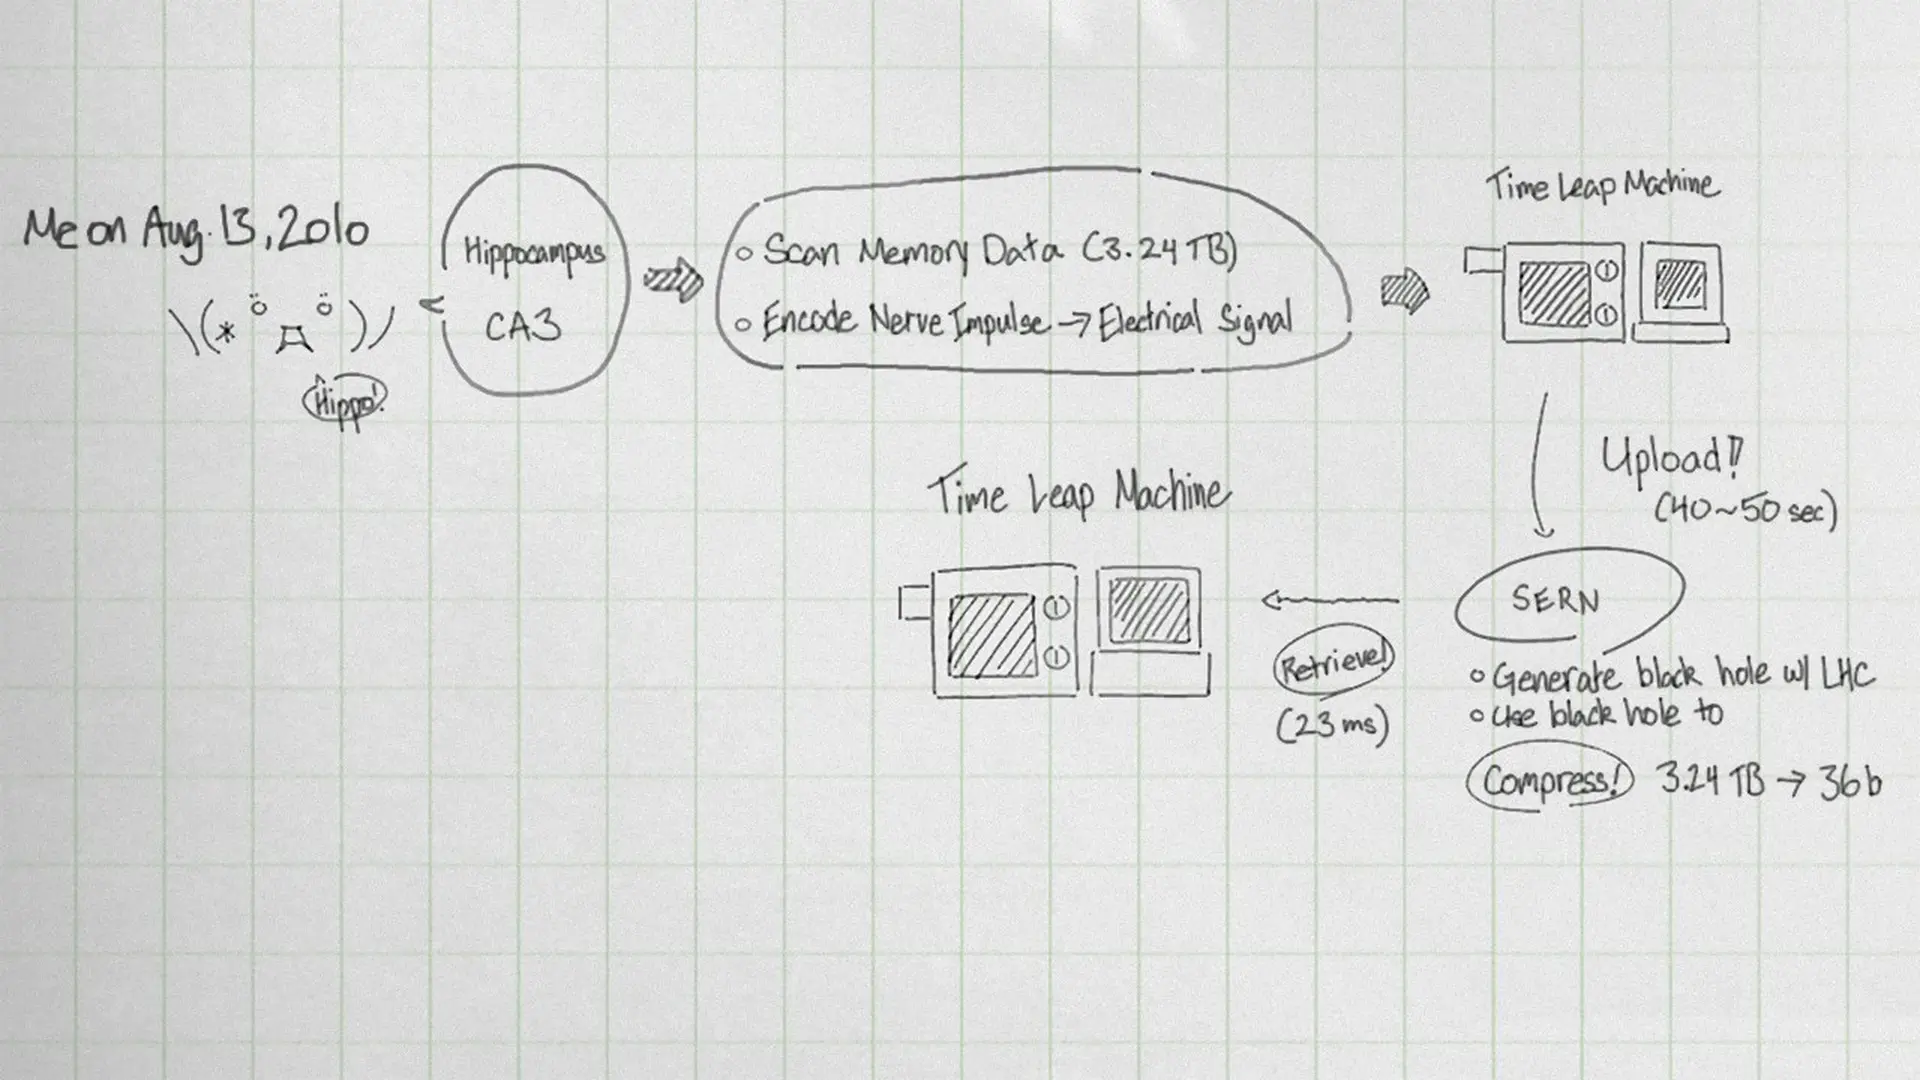 Me on Aug. 13, 2010
\(* ö д ö )/
Hippo!
Hippocampus
CA3
Scan Memory Data (3.24 TB)
Encode Nerve Impulse → Electrical Signal
Time Leap Machine
Upload!!
(40~50 sec)
SERN
Generate black hole w/ LHC
Use black hole to
Compress! 3.24 TB → 36b
Retrieve!
(23 ms)
Time Leap Machine